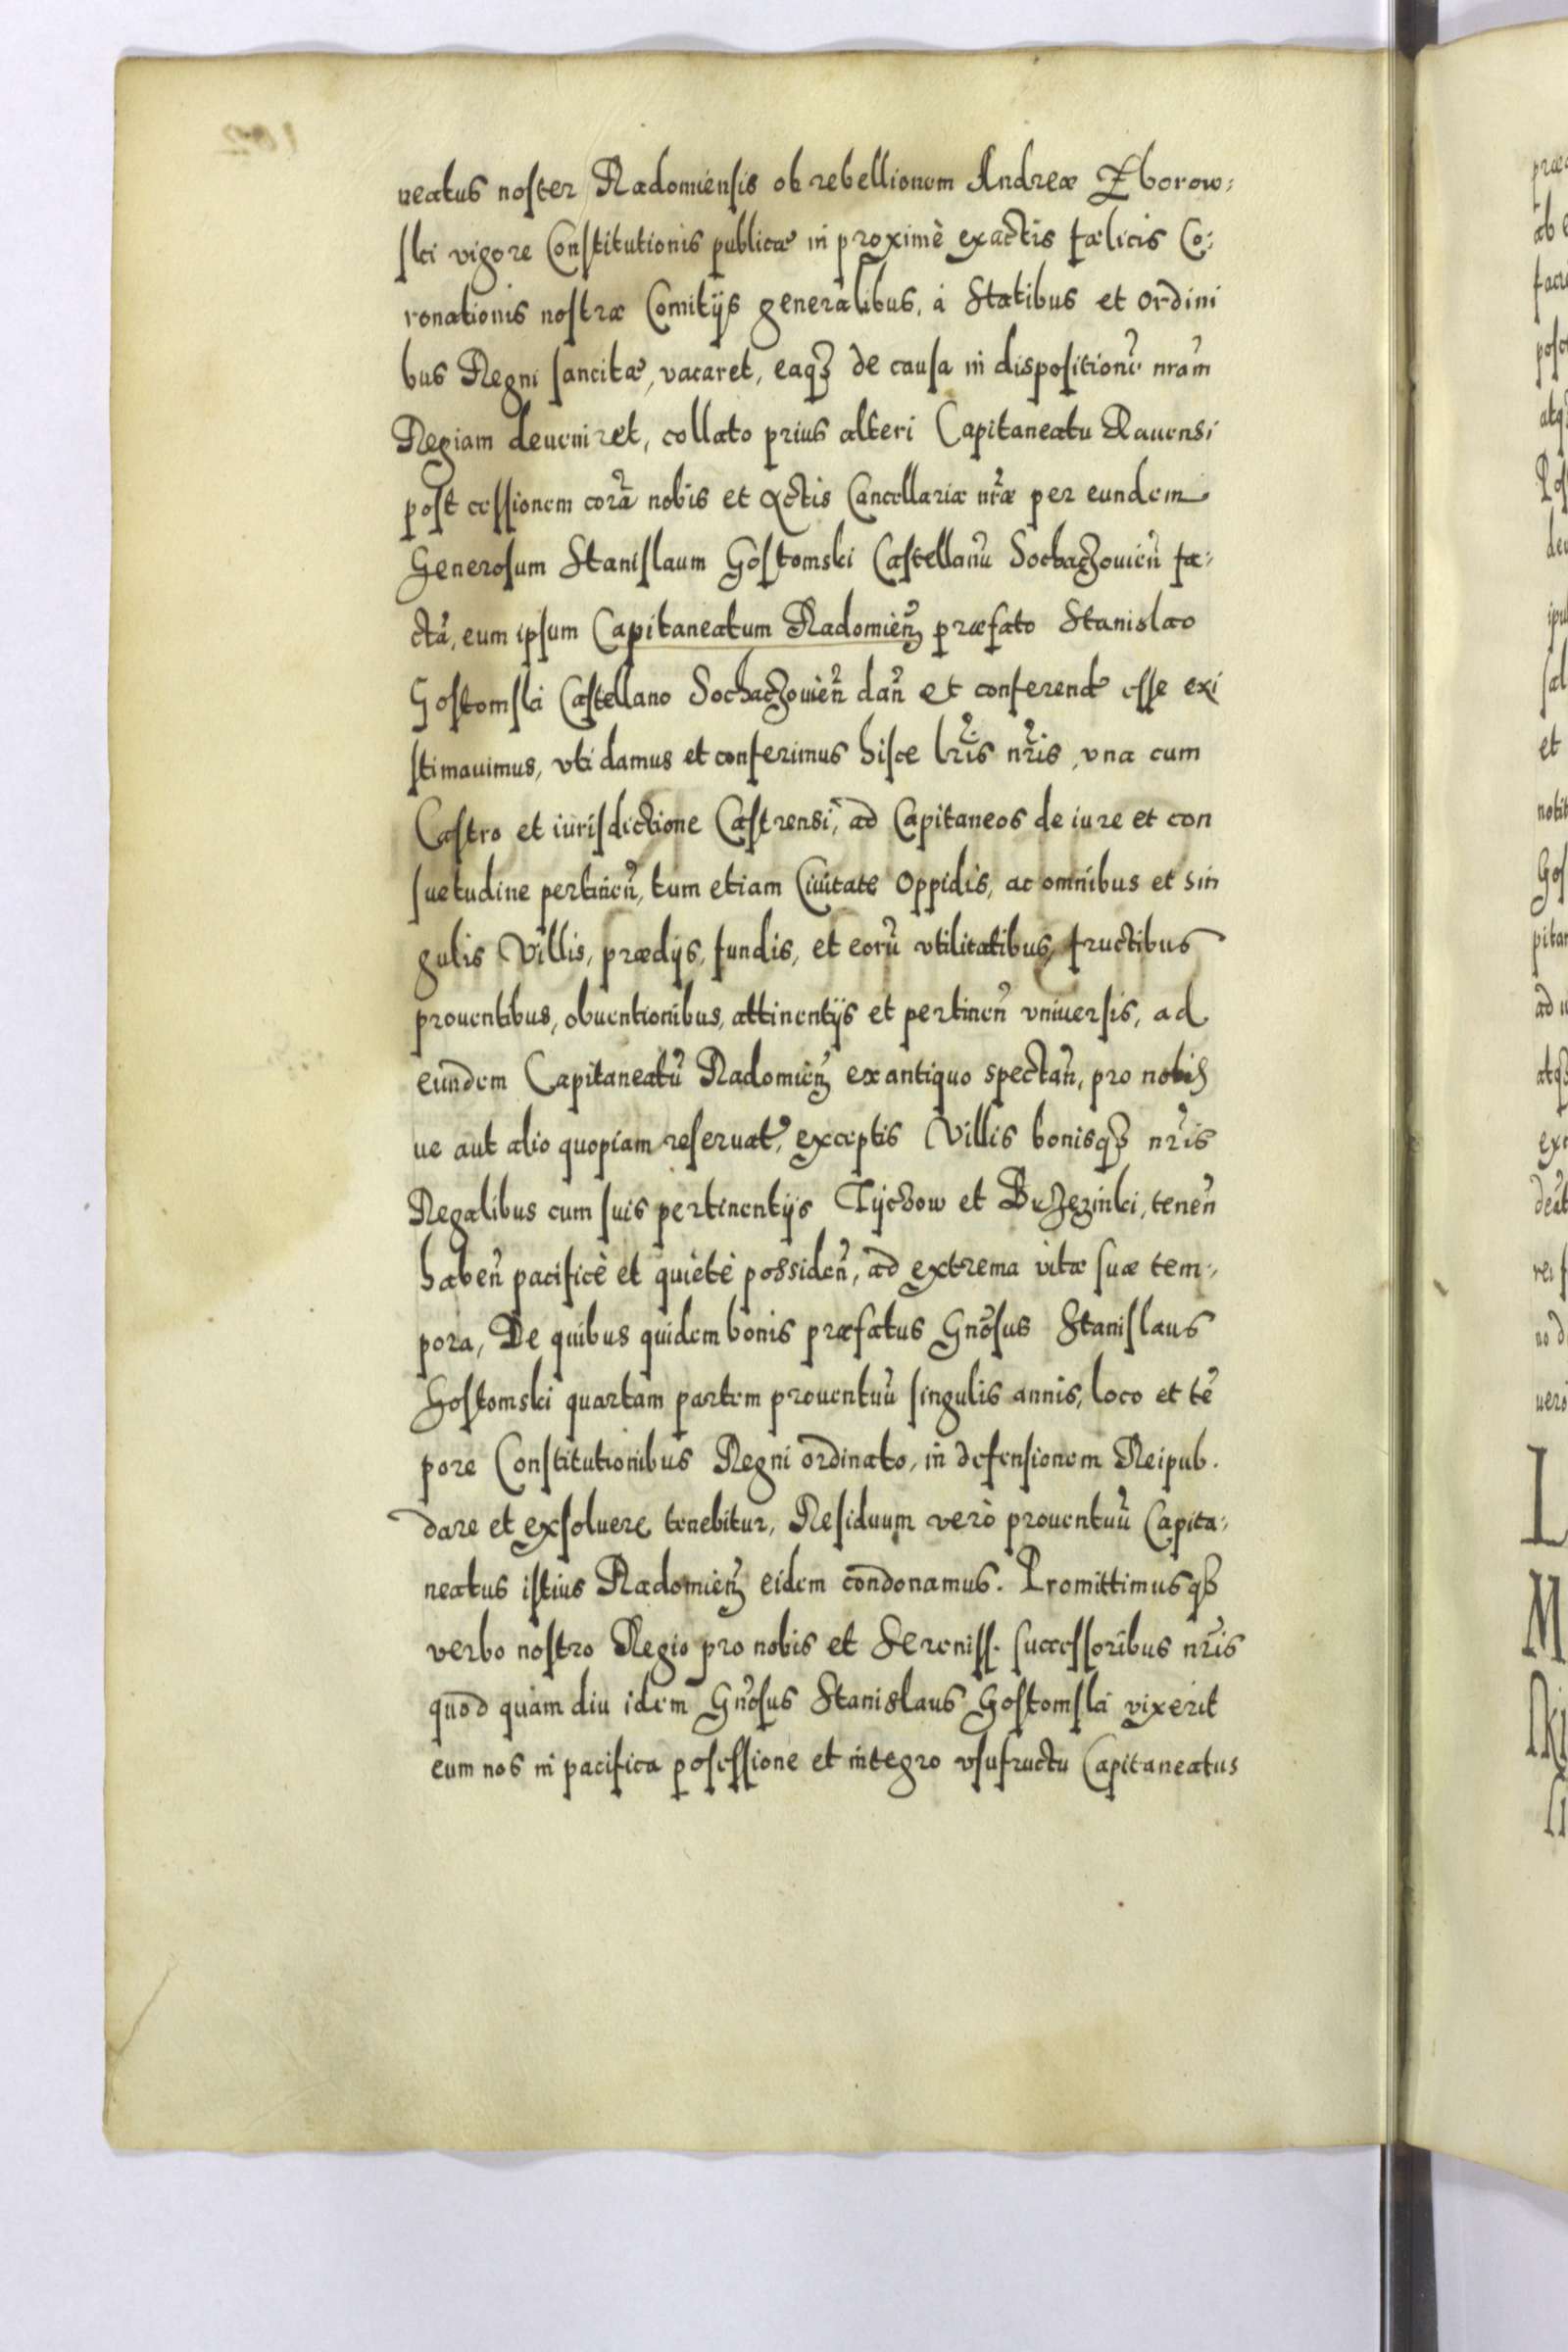 neatus noster Radomiensis ob rebellionem Andreæ Zborow:
ski vigore Constitutionis publicæ in proximè exactis fælicis Co:
ronationis nostræ Comitijs generalibus, à Statibus et Ordini
bus Regni sancitæ, vacaret, eaqꝫ de causa in dispositionẽ nram̃
Regiam deueniret, collato prius alteri Capitaneatu Rauensi
post cessionem corã nobis et Actis Cancellariæ nr̃æ per eundem
Generosum Stanislaum Gostomski Castellanũ Sochaczouien̄ fa:
ctã, eum ipsum Capitaneatum Radomien̄ præfato Stanislao
Gostomski Castellano Sochaczouien̄ dan̄ et conferend esse exi
stimauimus, vti damus et conferimus hisce lr̃is nr̃is, vna cum
Castro et iurisdictione Castrensi, ad Capitaneos de iure et con
suetudine pertinen̄, tum etiam Ciuitate Oppidis, ac omnibus et sin
gulis Villis, prædijs, fundis, et eorũ vtilitatibus, fructibus
prouentibus, obuentionibus, attinentijs et pertinen̄ vniuersis, ad
eundem Capitaneatũ Radomien̄ ex antiquo spectan̄, pro nobis
ue aut alio quopiam reseruat, exceptis Villis bonisqꝫ nr̃is
Regalibus cum suis pertinentijs Tijchow et Brzezinki, tenen̄
haben̄ pacificè et quietè possiden̄, ad extrema vitæ suæ tem:
pora, De quibus quidem bonis præfatus Gnõsus Stanislaus
Gostomski quartam partem prouentuũ singulis annis, loco et tẽ
pore Constitutionibus Regni ordinato, in defensionem Reipub.
dare et exsoluere tenebitur, Residuum verò prouentuũ Capita:
neatus istius Radomien̄ eidem condonamus. Promittimusqꝫ
verbo nostro Regio pro nobis et Sereniss. successoribus nr̃is
quod quam diu idem Gnõsus Stanislaus Gostomski vixerit
eum nos in pacifica posessione et integro vsufructu Capitaneatus